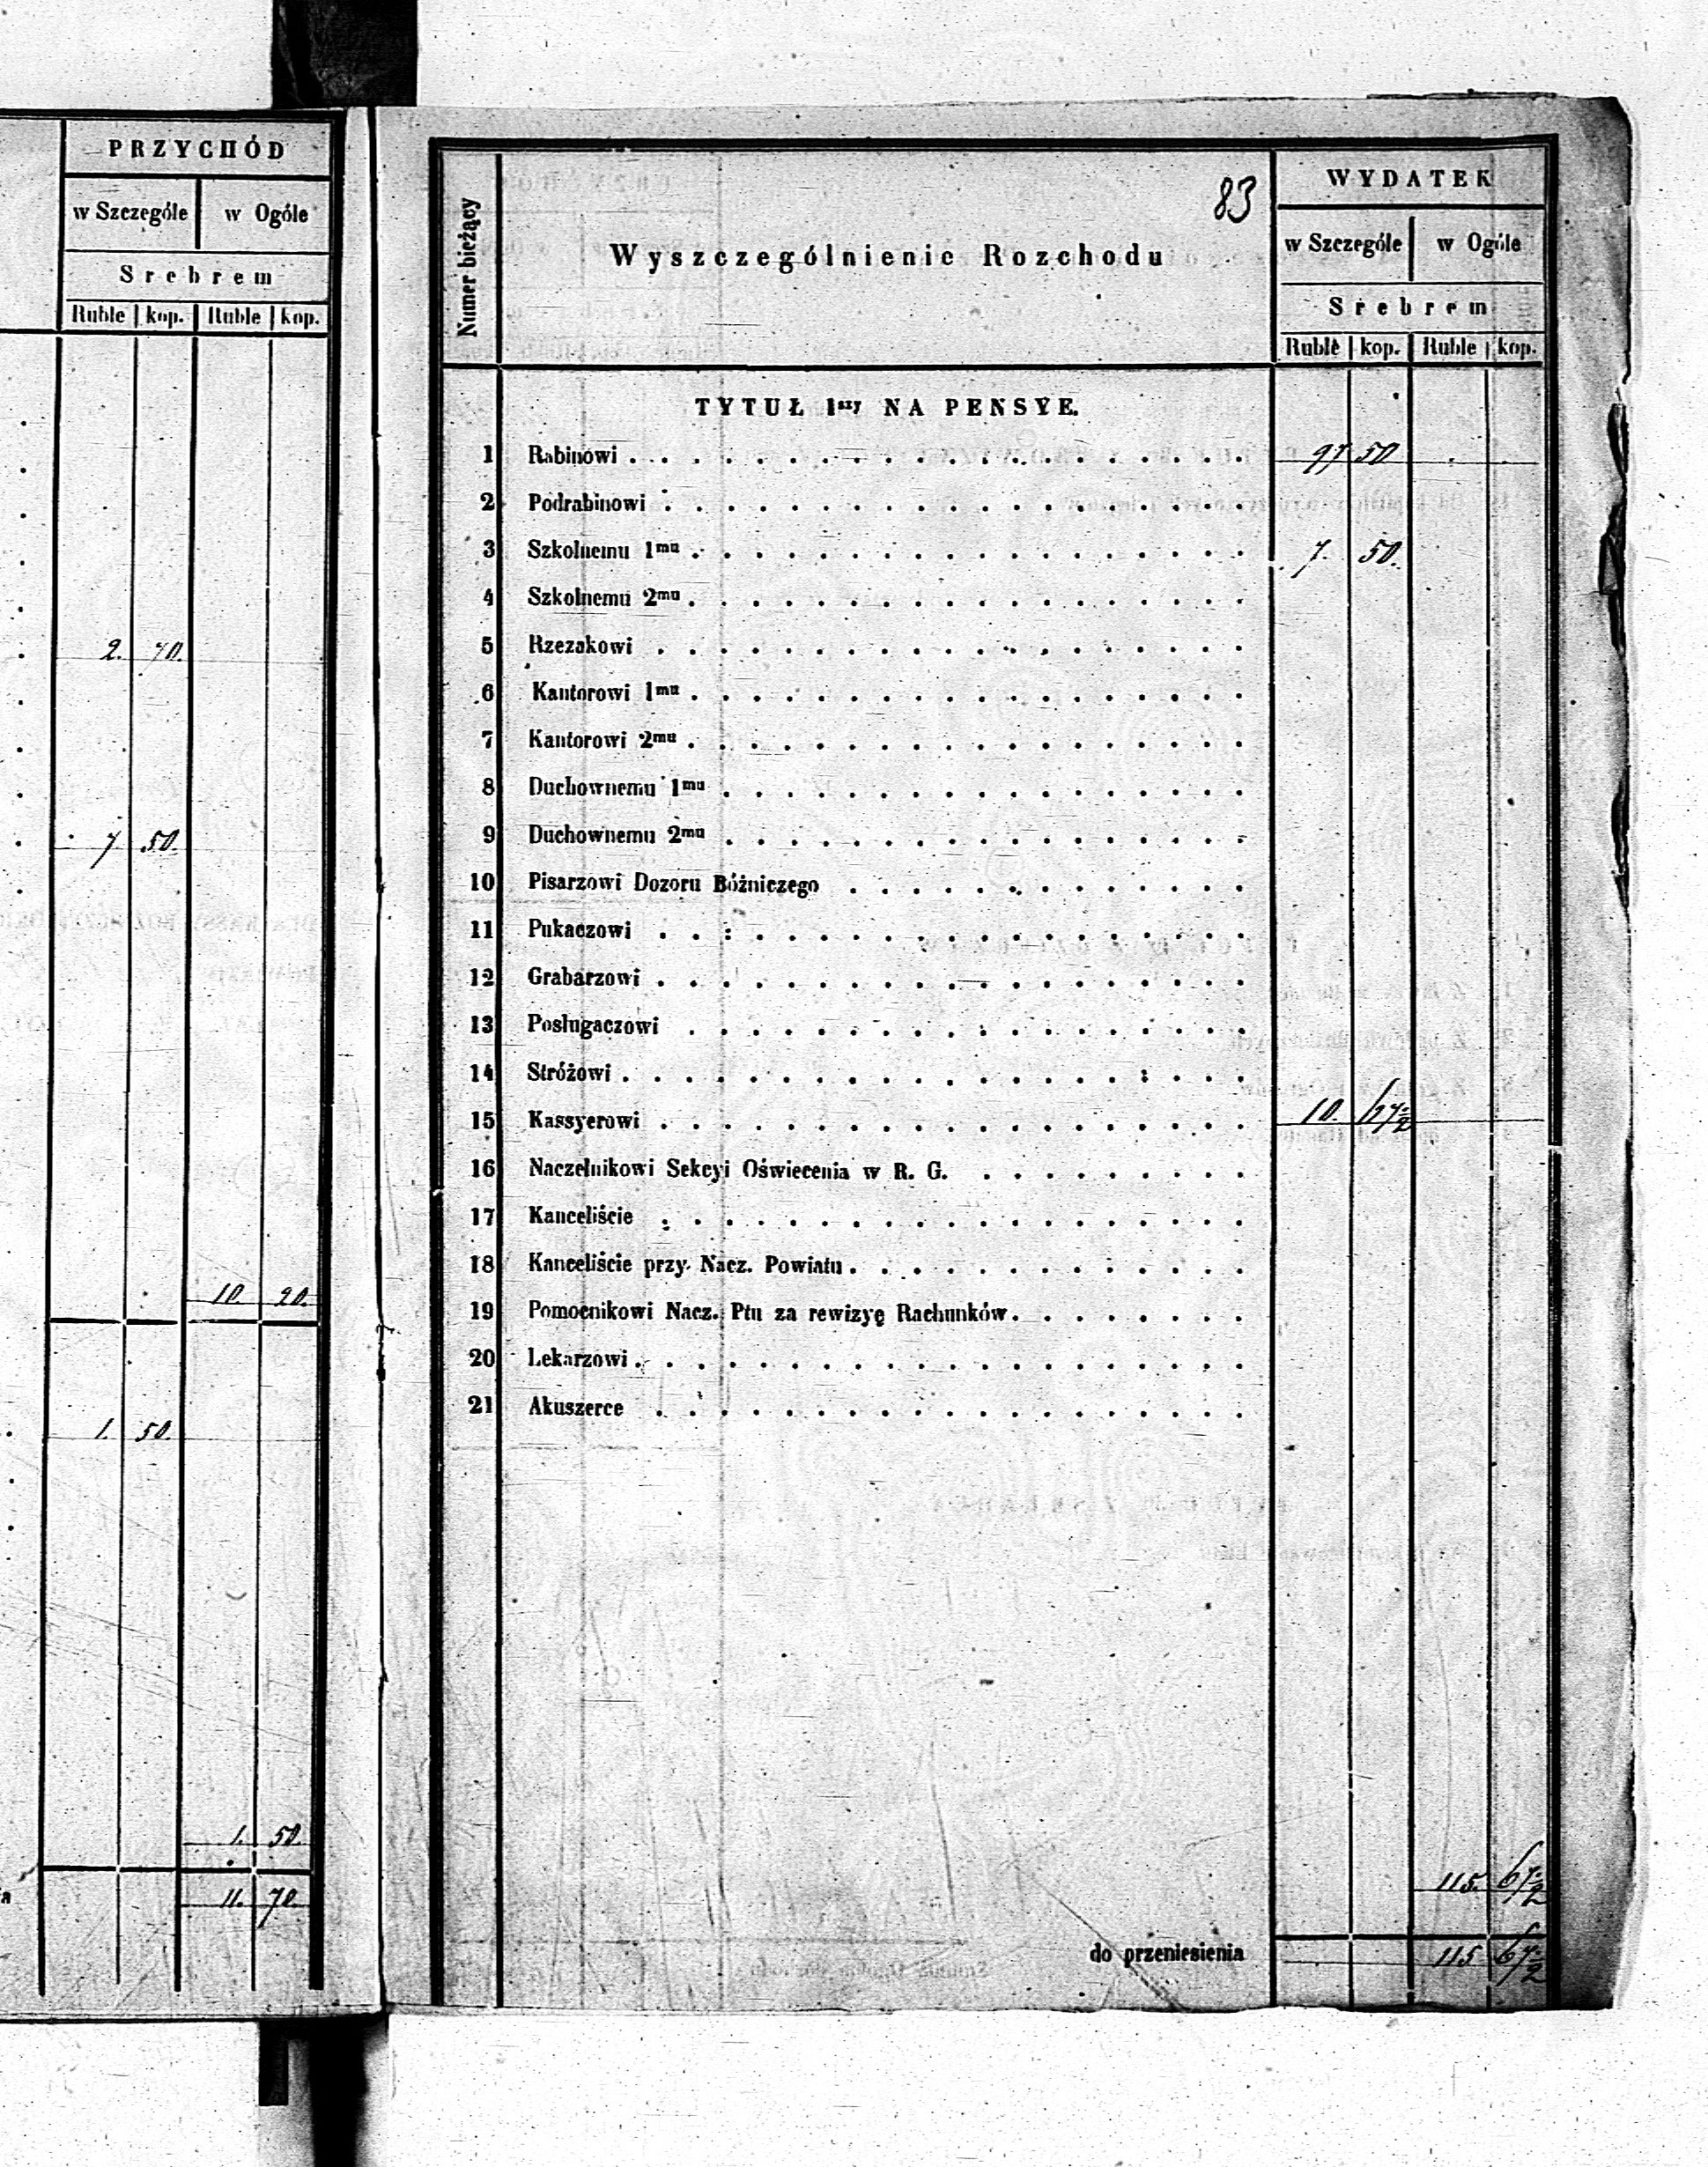 PRZYCHÓD
w Szczególe w Ogóle
Srebrem
Ruble kop. Ruble kop.
2. 70.
7 50.
10. 20.
1. 50.
1. 50.
11. 70.
83
Numer bieżący
Wyszczególnienie Rozchodu
WYDATEK
w Szczególe w Ogóle
Srebrem
Ruble kop. Ruble kop.
TYTUŁ 1szy NA PENSYE.
1 Rabinowi 97 50
2 Podrabinowi
3 Szkolnemu 1mu 7. 50.
4 Szkolnemu 2mu
5 Rzezakowi
6 Kantorowi 1mu
7 Kantorowi 2mu
8 Duchownemu 1mu
9 Duchownemu 2mu
10 Pisarzowi Dozoru Bóżniczego
11 Pukaczowi
12 Grabarzowi
13 Posługaczowi
14 Stróżowi
15 Kassyerowi 10. 67½
16 Naczelnikowi Sekcyi Oświecenia w R. G.
17 Kanceliście
18 Kanceliście przy Nacz. Powiatu
19 Pomocnikowi Nacz. Ptu za rewizyę Rachunków
20 Lekarzowi
21 Akuszerce
115. 67½
do przeniesienia 115 67½